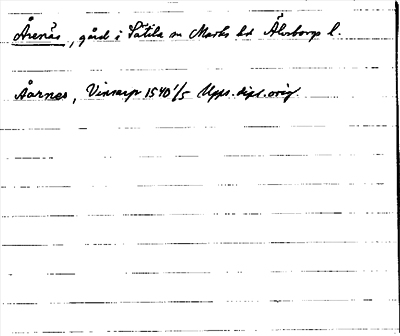 Årenäs, gård i Sätila sn Marks hd Älvsborgs l.
Aarnes, Vinsarp 1540 1/5 Upps. dipl. orig.